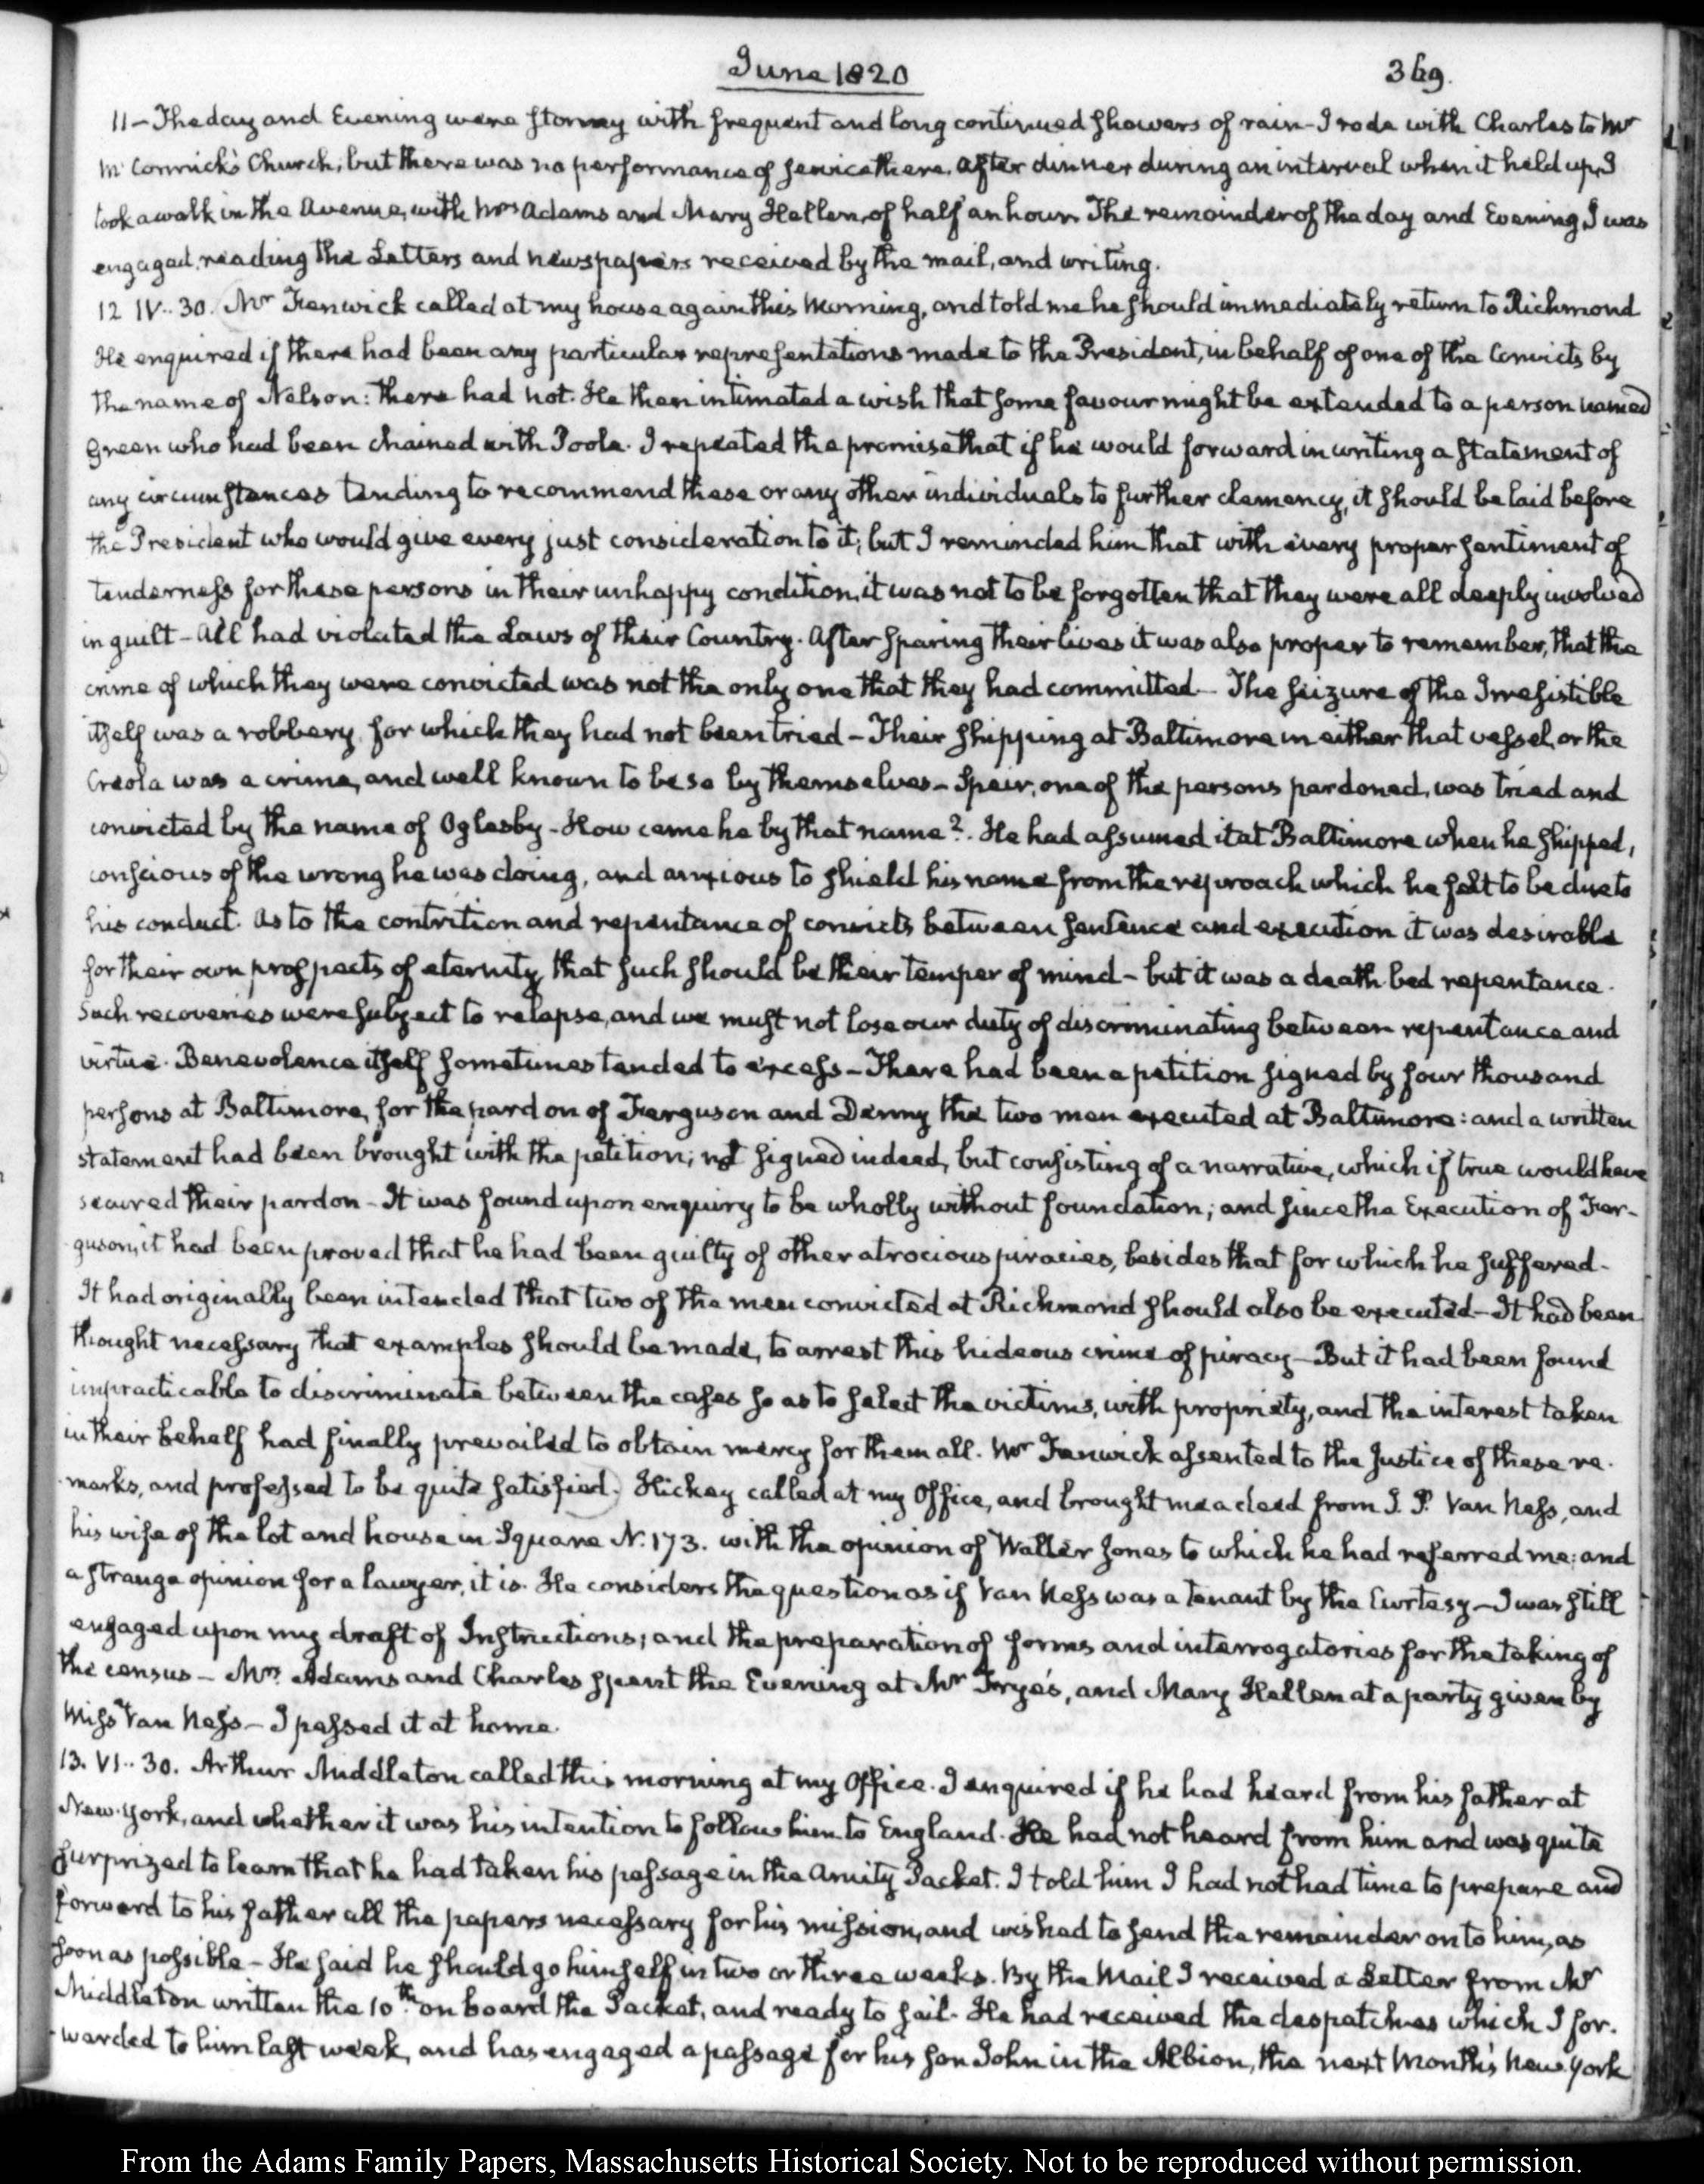 June 1820
369.
11 - The day and Evening were stormy with frequent and long continued showers of rain - I rode with Charles to Mr
Mc Cormick's Church; but there was no performance of service there. After dinner during an interval when it held up, I
took a walk in the Avenue, with Mrs Adams and Mary Hellen, of half an hour. The remainder of the day and Evening, I was
engaged, reading the Letters and newspapers received by the mail, and writing.
12 IV.. 30. Mr Fenwick called at my house again this Morning, and told me he should immediately return to Richmond
He enquired if there had been any particular representations made to the President, in behalf of one of the Convicts by
the name of Nelson: there had not. He then intimated a wish that some favour might be extended to a person named
Green who had been chained with Poole. I repeated the promise that if he would forward in writing a statement of
any circumstances tending to recommend these or any other individuals to further clemency, it should be laid before
the President who would give every just consideration to it; but I reminded him that with every proper sentiment of
tenderness for these persons in their unhappy condition, it was not to be forgotten that they were all deeply involved
in guilt - All had violated the Laws of their Country. After sparing their lives it was also proper to remember, that the
crime of which they were convicted was not the only one that they had committed - The seizure of the Irresistible
itself was a robbery, for which they had not been tried - Their shipping at Baltimore in either that vessel, or the
Creola was a crime, and well known to be so by themselves - Speir, one of the persons pardoned, was tried and
convicted by the name of Oglesby - How came he by that name?. He had assumed it at Baltimore when he shipped,
conscious of the wrong he was doing, and anxious to shield his name from the reproach which he felt to be due to
his conduct. As to the contrition and repentance of convicts between sentence and execution it was desirable
for their own prospects of eternity that such should be their temper of mind - but it was a death bed repentance.
Such recoveries were subject to relapse, and we must not lose our duty of discriminating between repentance and
virtue. Benevolence itself sometimes tended to excess - There had been a petition signed by four thousand
persons at Baltimore, for the pardon of Ferguson and Denny the two men executed at Baltimore: and a written
statement had been brought with the petition; not signed indeed, but consisting of a narrative, which if true would have
secured their pardon - It was found upon enquiry to be wholly without foundation; and since the Execution of Fer-
guson, it had been proved that he had been guilty of other atrocious piracies, besides that for which he suffered.
It had originally been intended that two of the men convicted at Richmond should also be executed - It had been
thought necessary that examples should be made, to arrest this hideous crime of piracy - But it had been found
impracticable to discriminate between the cases so as to select the victims, with propriety, and the interest taken
in their behalf had finally prevailed to obtain mercy for them all. Mr Fenwick assented to the Justice of these re-
marks, and professed to be quite satisfied. Hickey called at my Office, and brought me a deed from J. P. Van Ness, and
his wife of the lot and house in Square N. 173. with the opinion of Walter Jones to which he had referred me: and
a strange opinion for a lawyer, it is. He considers the question as if Van Ness was a tenant by the Curtesy - I was still
engaged upon my draft of Instructions; and the preparation of forms and interrogatories for the taking of
the census - Mrs Adams and Charles spent the Evening at Mr Frye's, and Mary Hellen at a party given by
Miss Van Ness - I passed it at home.
13. VI.. 30. Arthur Middleton called this morning at my Office. I enquired if he had heard from his father at
New-York, and whether it was his intention to follow him to England. He had not heard from him and was quite
surprized to learn that he had taken his passage in the Amity Packet. I told him I had not had time to prepare and
forward to his father all the papers necessary for his mission, and wished to send the remainder on to him, as
soon as possible - He said he should go himself in two or three weeks. By the Mail I received a Letter from Mr
Middleton written the 10th on board the Packet, and ready to sail. He had received the despatches which I for-
warded to him last week, and has engaged a passage for his son John in the Albion, the next Month's New York
From the Adams Family Papers, Massachusetts Historical Society. Not to be reproduced without permission.